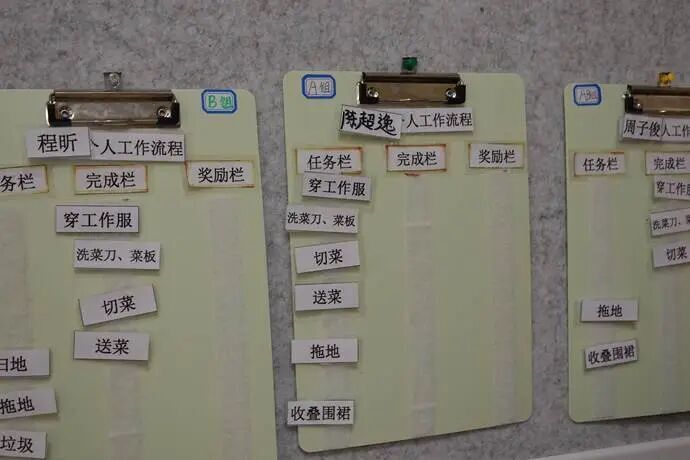 B组
程昕 个人工作流程
务栏 完成栏 奖励栏
穿工作服
洗菜刀、菜板
切菜
送菜
扫地
拖地
垃圾
A组
陈超逸 个人工作流程
任务栏 完成栏 奖励栏
穿工作服
洗菜刀、菜板
切菜
送菜
拖地
收叠围裙
A组
周子俊 人工作流程
任务栏 完成栏
穿工作服
洗菜刀、菜板
切菜
拖地
收叠围裙